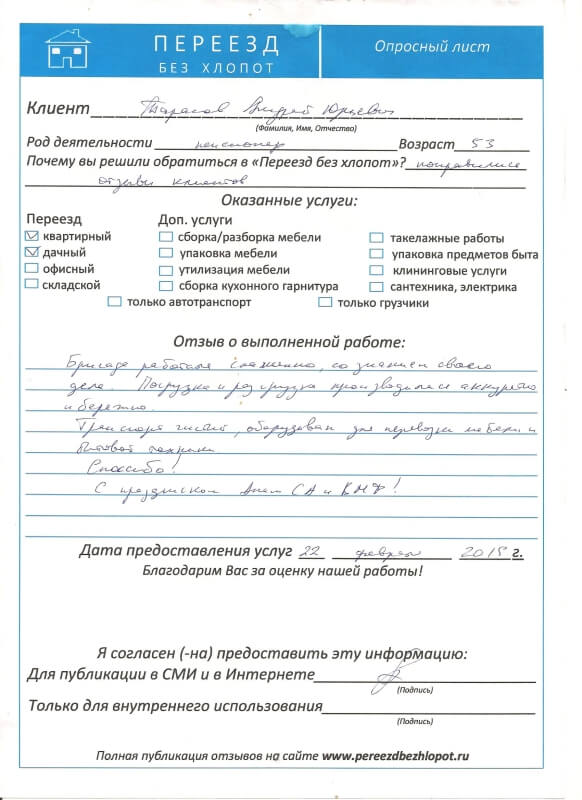 ПЕРЕЕЗД
БЕЗ ХЛОПОТ
Опросный лист
Клиент Тарасов Андрей Юрьевич
(Фамилия, Имя, Отчество)
Род деятельности пенсионер Возраст 53
Почему вы решили обратиться в «Переезд без хлопот»? понравились
отзывы клиентов
Оказанные услуги:
Переезд Доп. услуги
квартирный сборка/разборка мебели такелажные работы
дачный упаковка мебели упаковка предметов быта
офисный утилизация мебели клининговые услуги
складской сборка кухонного гарнитура сантехника, электрика
только автотранспорт только грузчики
Отзыв о выполненной работе:
Бригада работала слаженно, со знанием своего
дела. Погрузка и разгрузка производилась аккуратно
и бережно.
Транспорт чистый, оборудован для перевозки мебели и
бытовой техники
Спасибо!
С праздником Днем СА и ВМФ!
Дата предоставления услуг 22 февраля 2015 г.
Благодарим Вас за оценку нашей работы!
Я согласен (-на) предоставить эту информацию:
Для публикации в СМИ и в Интернете
(Подпись)
Только для внутреннего использования
(Подпись)
Полная публикация отзывов на сайте www.pereezdbezhlopot.ru